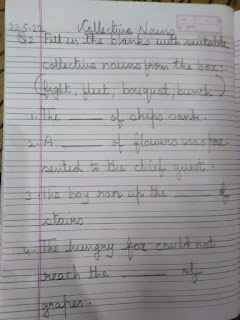 22-5-22 Collective Nouns
Q2 Fill in the blanks with suitable
collective nouns from the box:-
(flight, fleet, bouquet, bunch)
1. The ____ of ships sank.
2. A ____ of flowers was pre-
sented to the chief guest.
3. The boy ran up the ____ of
stairs
4. The hungry fox could not
reach the ____ of
grapes.